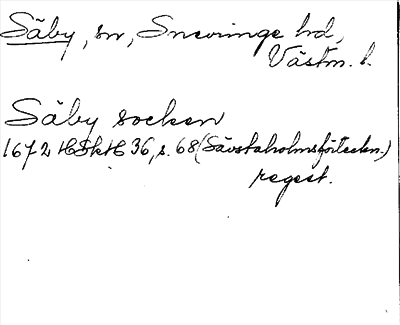 Säby, sn, Snevringe hd,
Västm. l.
Säby socken
1672 HSkH 36, s. 68 (Sävstaholmsförteckn.)
regest.